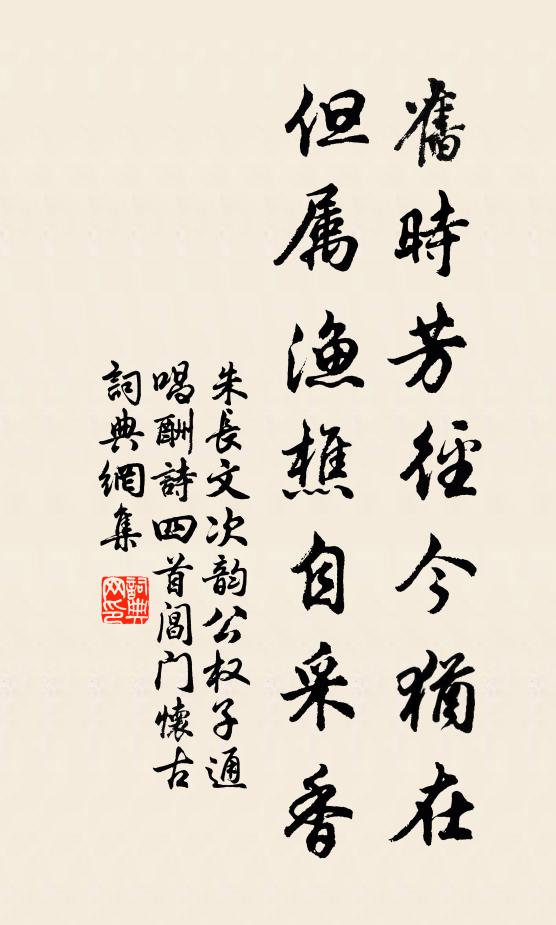 舊時芳徑今猶在
但属漁樵自采香
朱長文次韵公权子通
唱酬詩四首閶門懷古
詞典網集
詞典网印